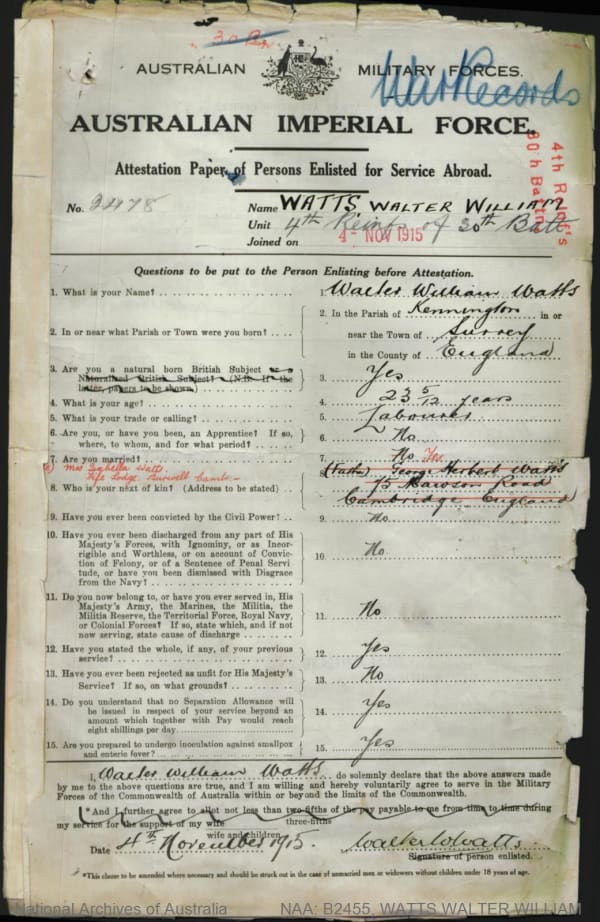 30 Bn
AUSTRALIAN MILITARY FORCES.
War Records
AUSTRALIAN IMPERIAL FORCE.
Attestation Paper of Persons Enlisted for Service Abroad.
4th Reinf's
30th Battn
No. 3478 Name WATTS WALTER WILLIAM
Unit 4th Reinfs of 30th Batt
Joined on 4 - NOV 1915
Questions to be put to the Person Enlisting before Attestation.
1. What is your Name? 1. Walter William Watts
2. In or near what Parish or Town were you born? 2. In the Parish of Kennington in or
near the Town of Surrey
in the County of England
3. Are you a natural born British Subject or a
Naturalized British Subject? (N.B. If the
latter, papers to be shown.) 3. Yes
4. What is your age? 4. 23 5/12 years
5. What is your trade or calling? 5. Labourer
6. Are you, or have you been, an Apprentice? If so,
where, to whom, and for what period? 6. No
7. Are you married? 7. No Yes
8) Mrs Isabella Watts
Lodge Burwell Cambs
8. Who is your next of kin? (Address to be stated) 8. (Father) George Herbert Watts
75 Mawson Road
Cambridge England
9. Have you ever been convicted by the Civil Power? 9. No
10. Have you ever been discharged from any part of His
Majesty's Forces, with Ignominy, or as Incor-
rigible and Worthless, or on account of Convic-
tion of Felony, or of a Sentence of Penal Servi
tude, or have you been dismissed with Disgrace
from the Navy? 10. No
11. Do you now belong to, or have you ever served in, His
Majesty's Army, the Marines, the Militia, the
Militia Reserve, the Territorial Force, Royal Navy,
or Colonial Forces? If so, state which, and if not
now serving, state cause of discharge 11. No
12. Have you stated the whole, if any, of your previous
service? 12. Yes
13. Have you ever been rejected as unfit for His Majesty's
Service? If so, on what grounds? 13. No
14. Do you understand that no Separation Allowance will
be issued in respect of your service beyond an
amount which together with Pay would reach
eight shillings per day 14. Yes
15. Are you prepared to undergo inoculation against smallpox
and enteric fever? 15. Yes
I, Walter William Watts do solemnly declare that the above answers made
by me to the above questions are true, and I am willing and hereby voluntarily agree to serve in the Military
Forces of the Commonwealth of Australia within or beyond the limits of the Commonwealth.
*And I further agree to allot not less than two-fifths of the pay payable to me from time to time during
three-fifths
my service for the support of my wife
wife and children.
Date 4th November 1915. Walter W Watts
Signature of person enlisted.
*This clause to be amended where necessary and should be struck out in the case of unmarried men or widowers without children under 18 years of age.
National Archives of Australia NAA: B2455, WATTS WALTER WILLIAM